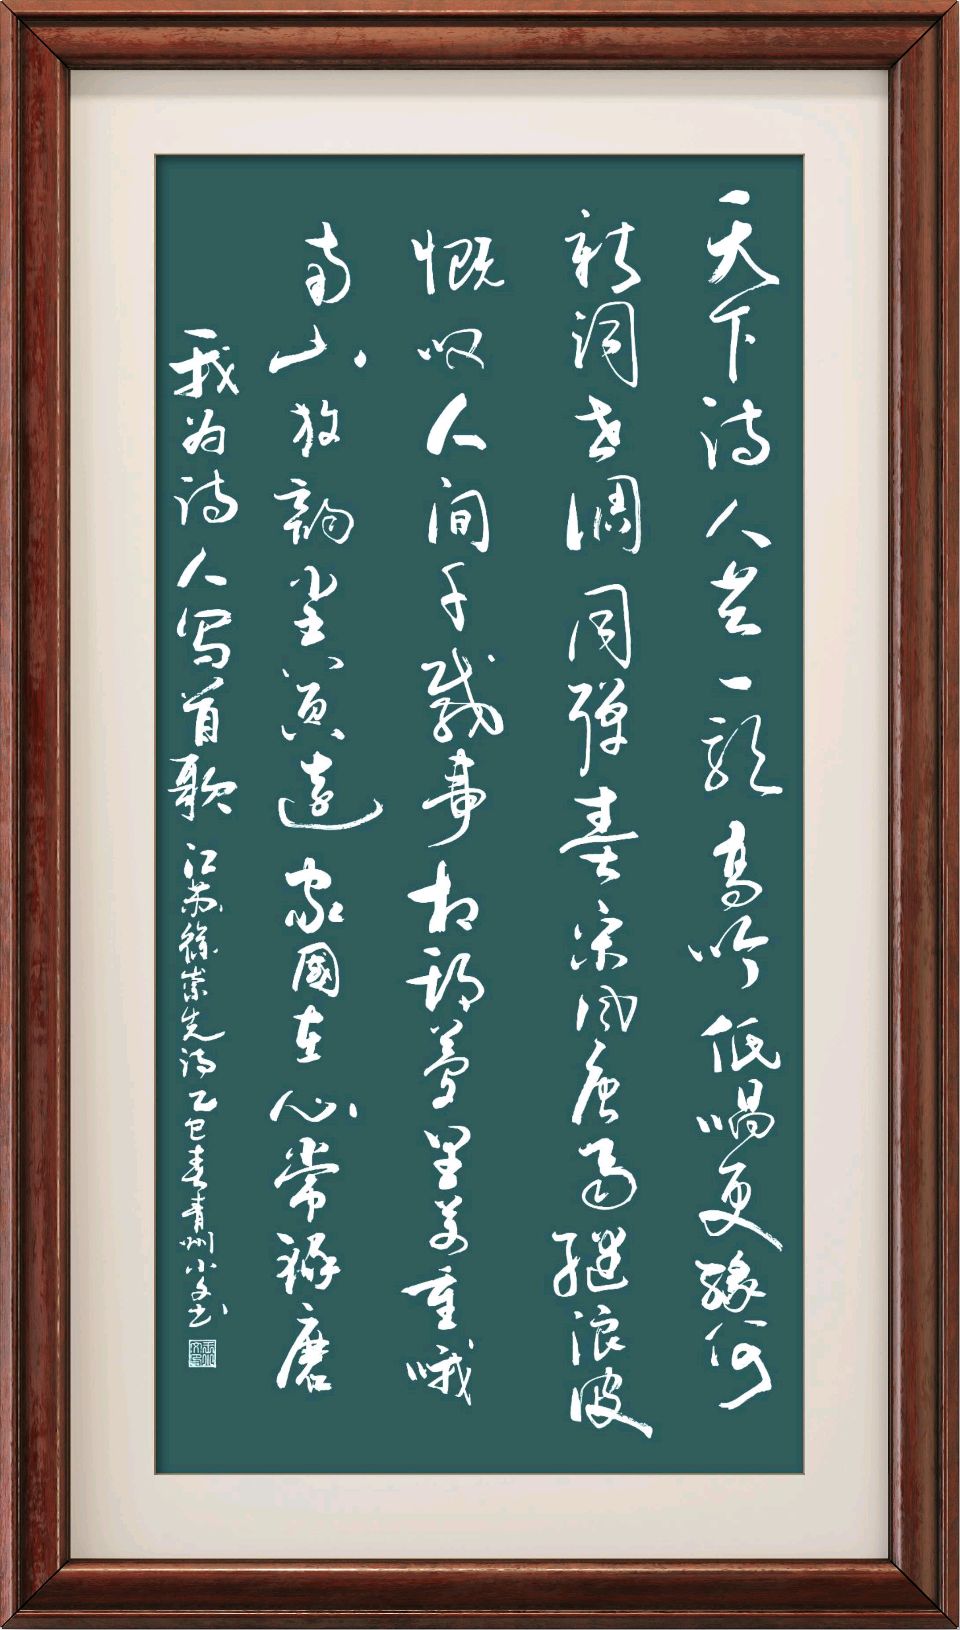 天下诗人一高吟低唱更缘何
新词调同弹奏宋风唐继浪波
慨叹人间千载事相邀梦里万重哦
南山放韵坐更远家國在心常琢磨
我为诗人写首歌 江苏徐崇先诗乙巳春青州小文书